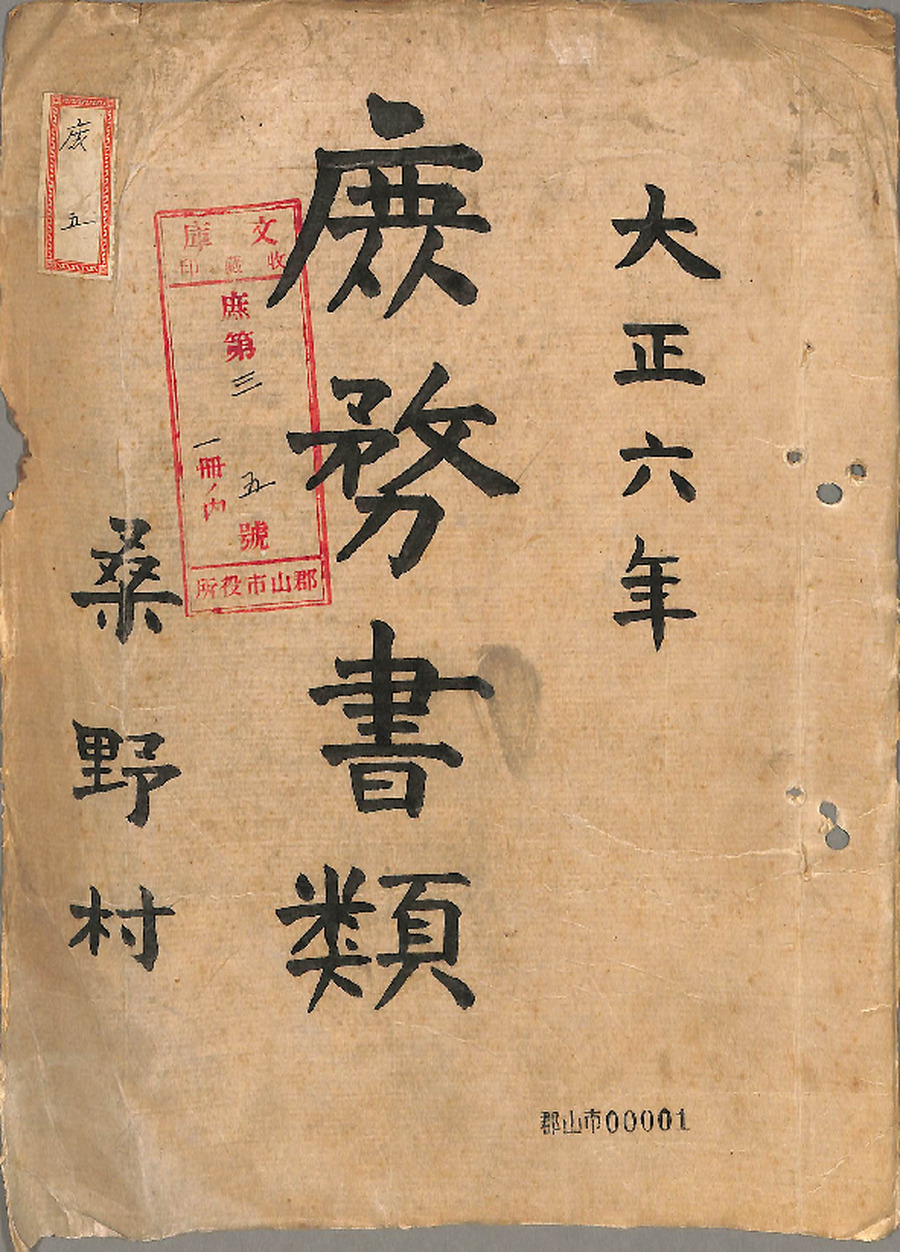 大正六年
庶務書類
桑野村
文庫
収蔵印
庶第三五號
一冊ノ内
郡山市役所
庶
五
郡山市00001